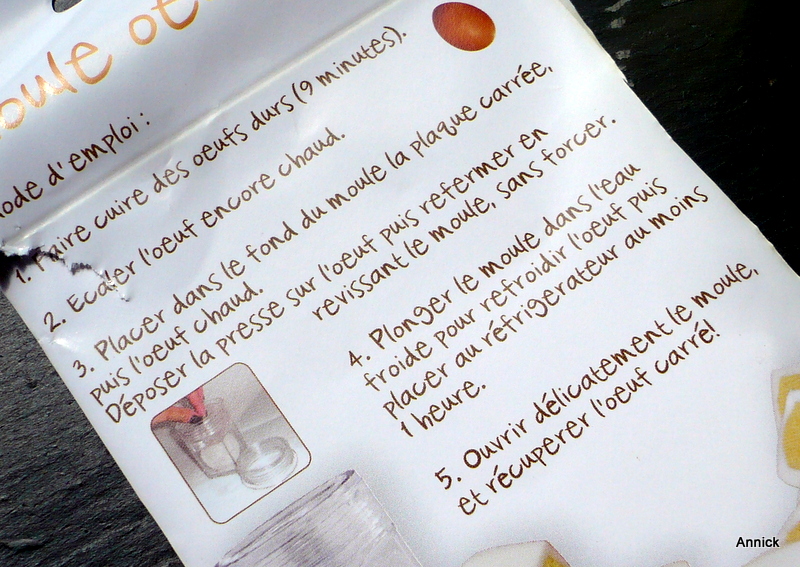 oule oe
ode d'emploi :
1. Faire cuire des oeufs durs (9 minutes).
2. Ecaler l'oeuf encore chaud.
3. Placer dans le fond du moule la plaque carrée,
puis l'oeuf chaud.
Déposer la presse sur l'oeuf puis refermer en
revissant le moule, sans forcer.
4. Plonger le moule dans l'eau
froide pour refroidir l'oeuf puis
placer au réfrigerateur au moins
1 heure.
5. Ouvrir délicatement le moule,
et récuperer l'oeuf carré!
Annick